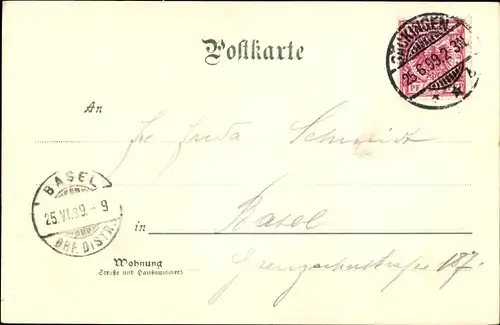 Postkarte
SÄCKINGEN
25.6.99.2-3N.
An
Schmidt
BASEL
25.VI.99.-9
BRF. DISTR.
in Basel
Wohnung
(Straße und Hausnummer)
Grenzacherstraße 107.